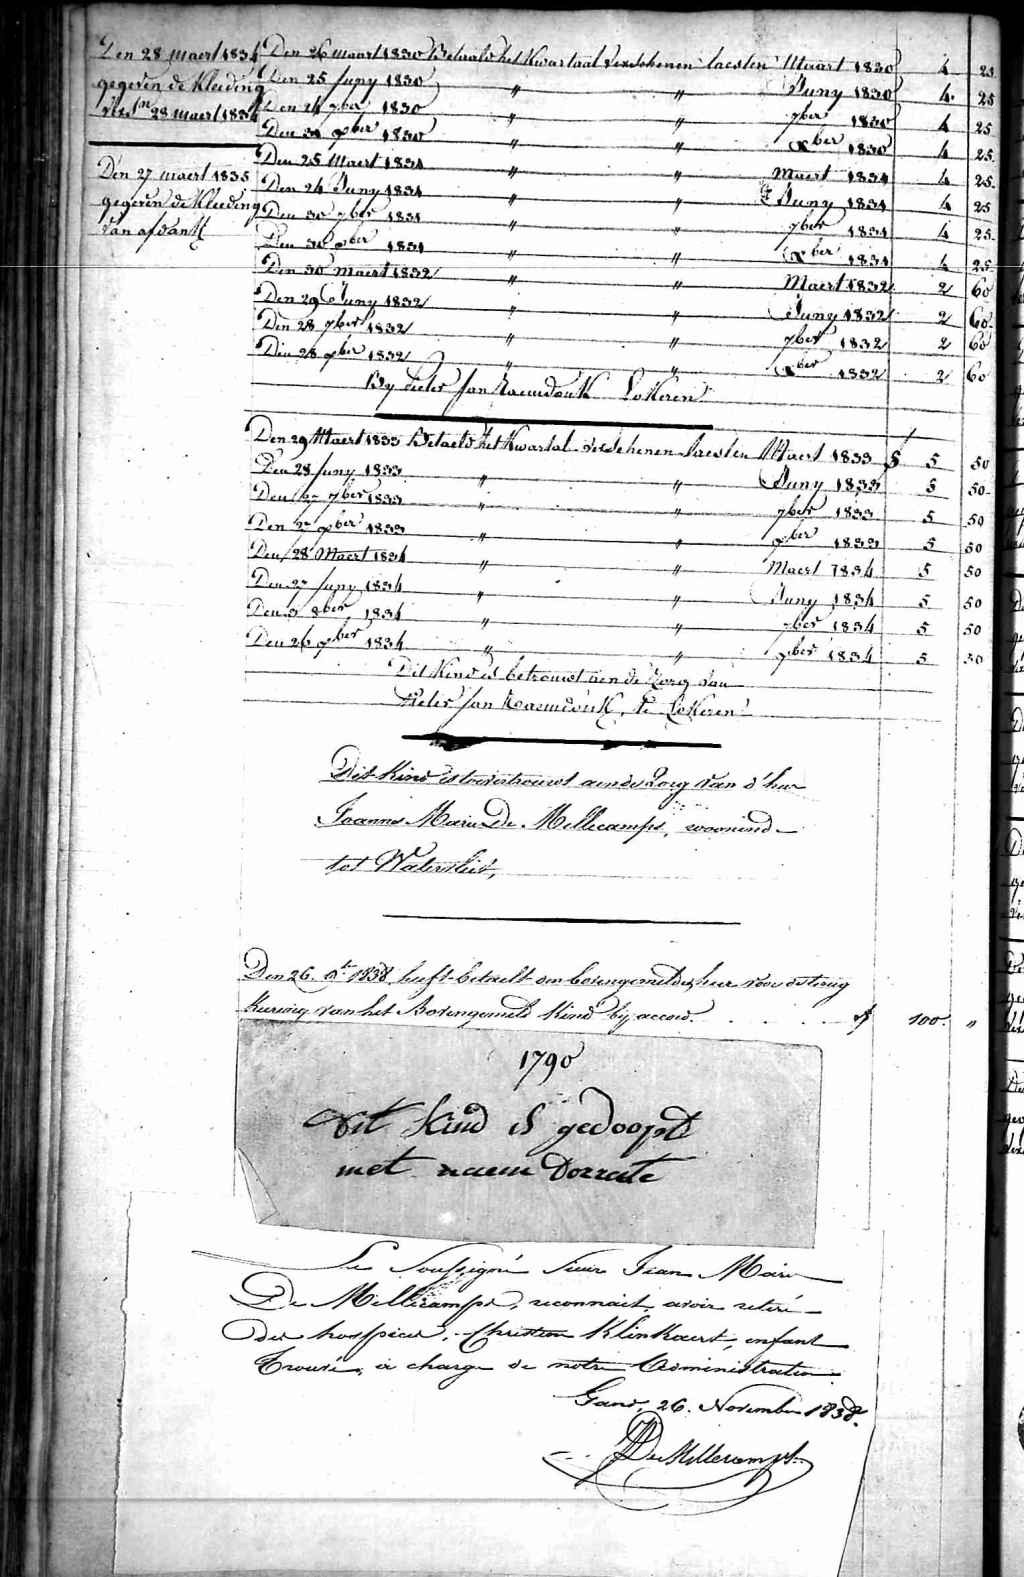 Den 28 maert 1834
gegeven de Kleeding
28 maert 1834
Den 27 maert 1835
gegeven de Kleeding
van afdank
Den 26 maart 1830 Betaald het Kwartaal verschenen laesten Maart 1830 4 25
Den 25 Juny 1830 " " Juny 1830 4 25
Den 24 7ber 1830 " " 7ber 1830 4 25
Den 31 xber 1830 " " xber 1830 4 25
Den 25 Maert 1831 " " Maert 1831 4 25
Den 24 Juny 1831 " " Juny 1831 4 25
Den 30 7ber 1831 " " 7ber 1831 4 25
Den 30 xber 1831 " " xber 1831 4 25
Den 30 Maert 1832 " " Maert 1832 2 60
Den 29 Juny 1832 " " Juny 1832 2 60
Den 28 7ber 1832 " " 7ber 1832 2 60
Den 28 xber 1832 " " xber 1832 2 60
By Pieter Jan Raemdonk Lokeren
Den 29 Maert 1833 Betaeld het Kwartal verschenen laesten Maert 1833 5 50
Den 28 Juny 1833 " " Juny 1833 5 50
Den 27 7ber 1833 " " 7ber 1833 5 50
Den xber 1833 " " xber 1833 5 50
Den 28 Maert 1834 " " Maert 1834 5 50
Den 27 Juny 1834 " " Juny 1834 5 50
Den 3 8ber 1834 " " 7ber 1834 5 50
Den 26 xber 1834 " " xber 1834 5 50
Dit Kind is betrouwt aen de Zorg van
Pieter Jan Raemdonk, te Lokeren
Dit Kind is toevertrouwt aen de Zorg van d'heer
Joannes Marie De Millecamps, woonende
tot Watervliet,
Den 26 1838 heeft betaelt den bovengemelde heer voor de terug
keering van het Bovengemeld Kind by accord. . . . . 100. "
1790
Dit kind is gedoopt
met naem Dorrate
Le Soussigné Sieur Jean Marie
De Millecamps, reconnait avoir retiré
des hospices, Christian Klinkaert, enfant
trouvé, à charge de notre Administration.
Gand, 26. Novembre 1838.
De Millecamps